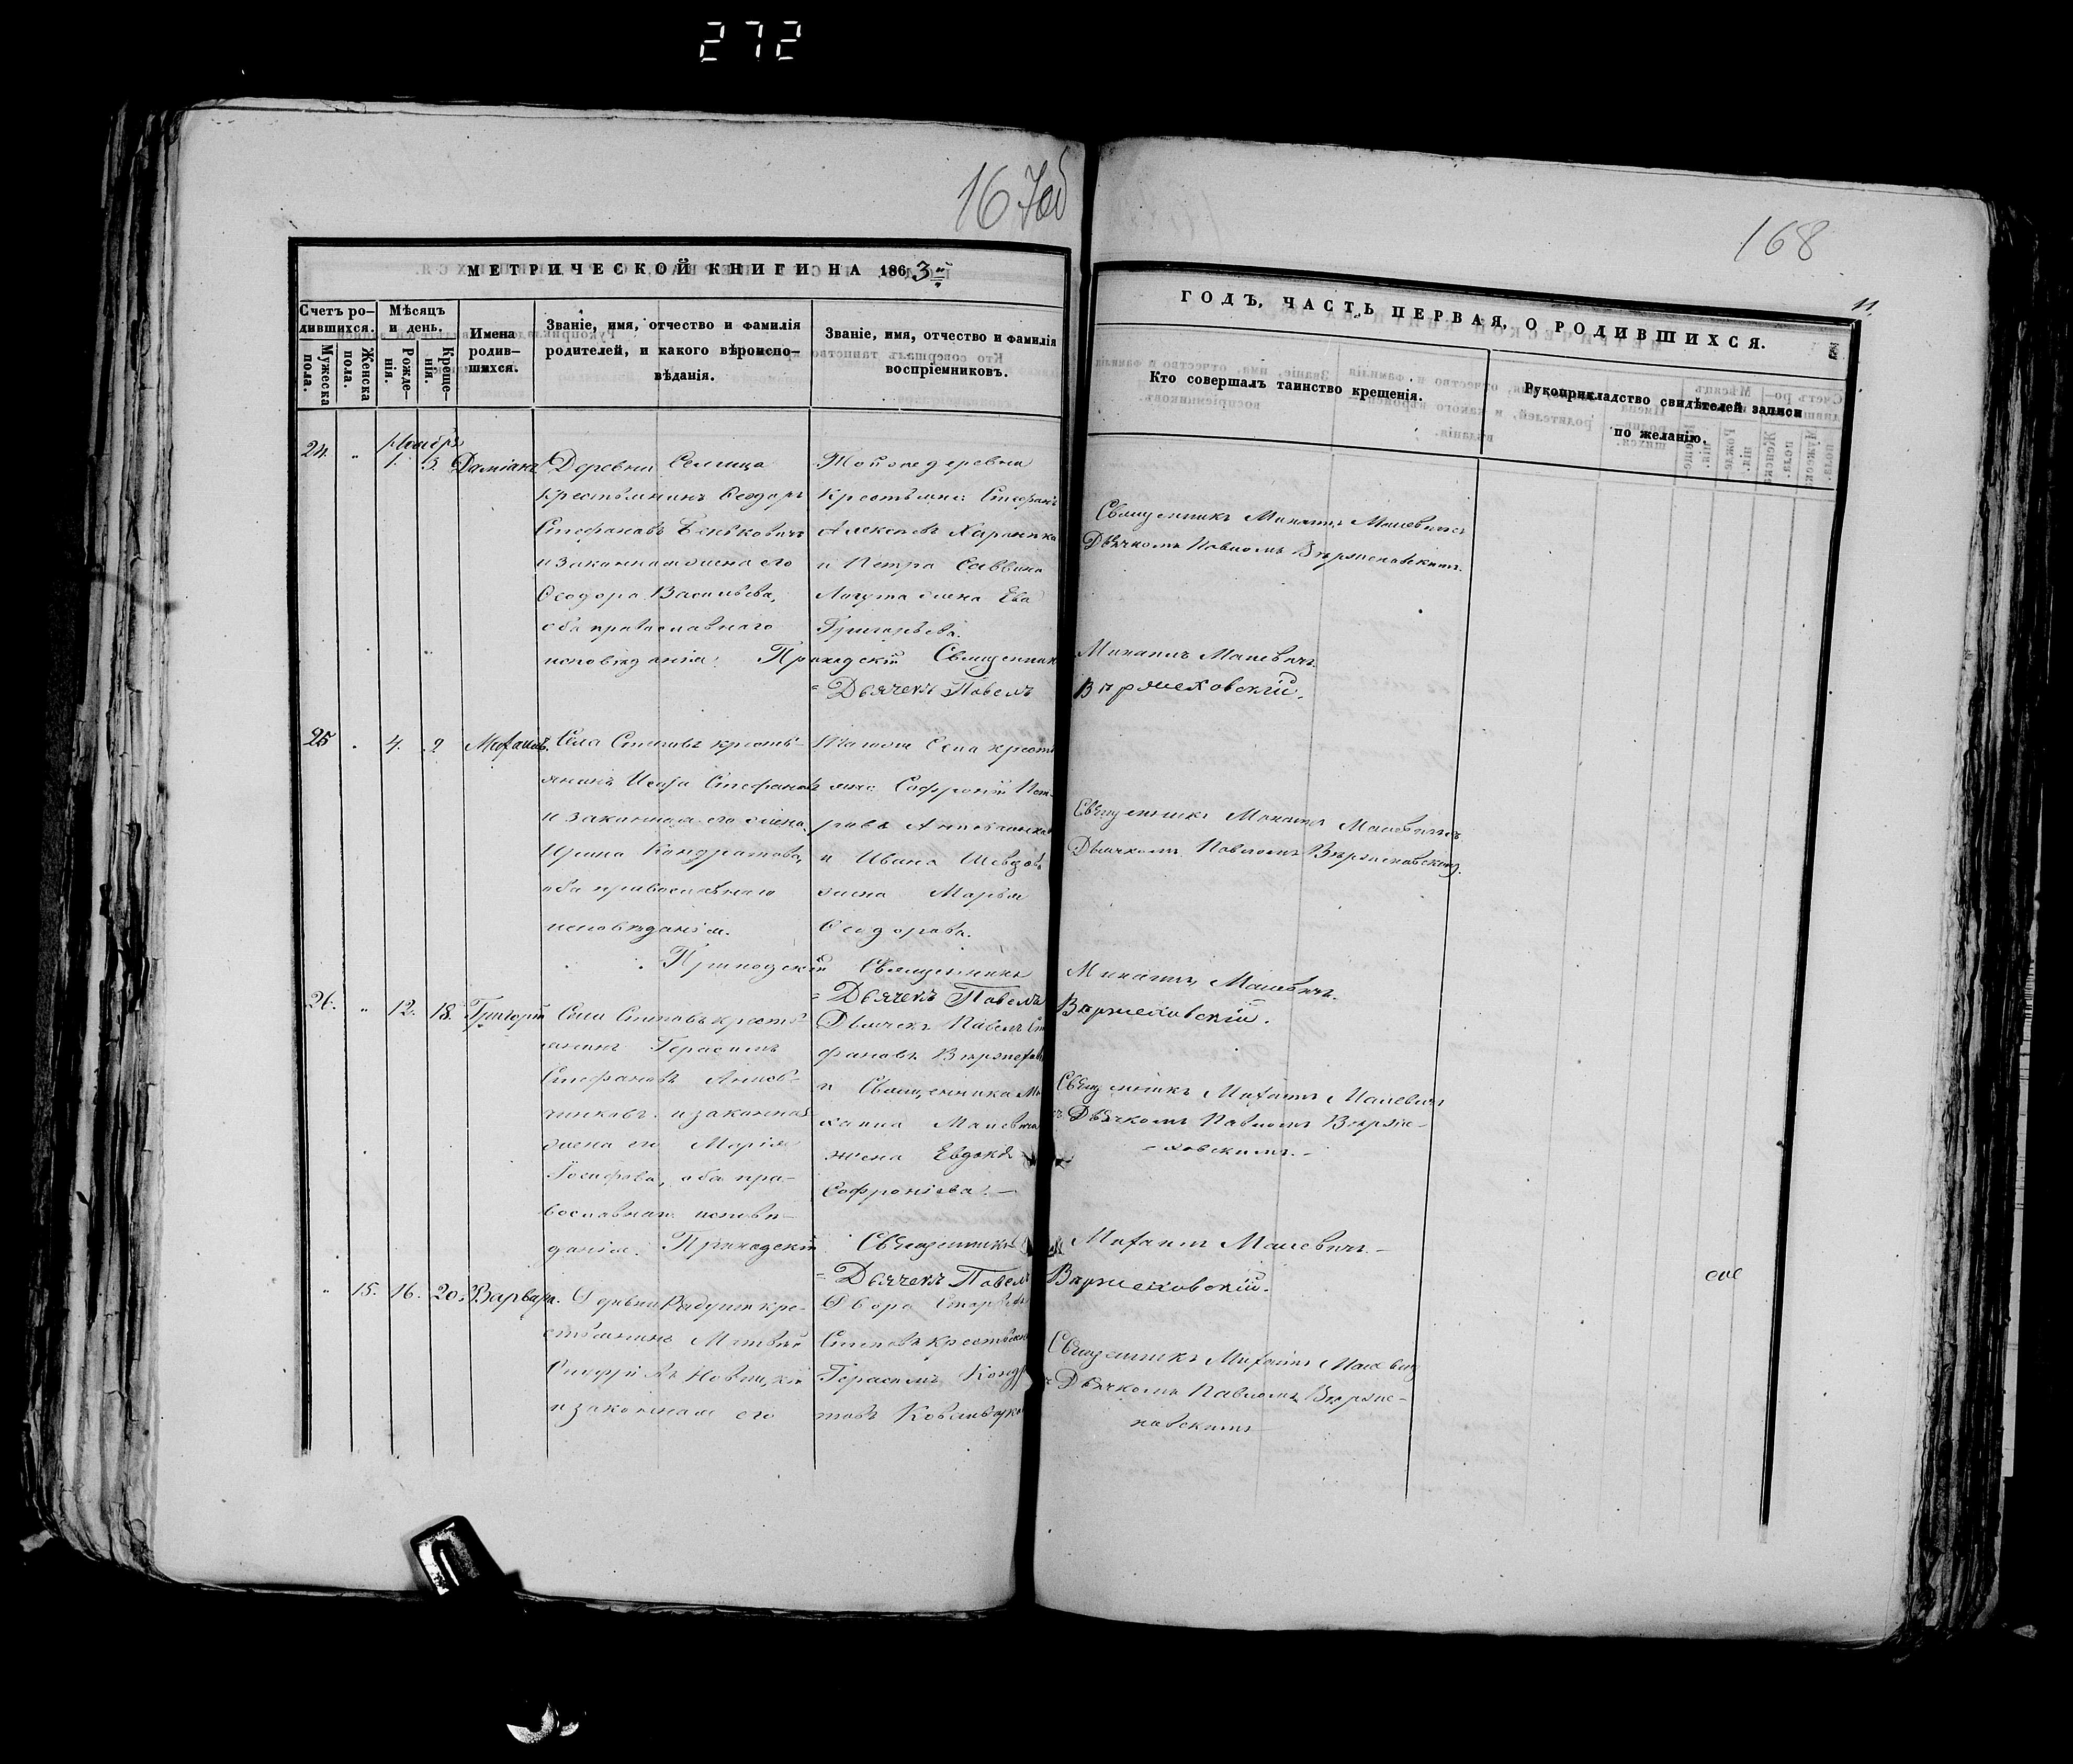 272
167об
168
11.
МЕТРИЧЕСКОЙ КНИГИ НА 1863й
ГОДЪ, ЧАСТЬ ПЕРВАЯ, О РОДИВШИХСЯ.
Счетъ ро-
дившихся.
Мужеска
пола.
Женска
пола.
Мѣсяцъ
и день.
Рожде-
нія.
Креще-
нія.
Имена
родив-
шихся.
Званіе, имя, отчество и фамилія
родителей, и какого вѣроиспо-
вѣданія.
Званіе, имя, отчество и фамилія
воспріемниковъ.
Кто совершалъ таинство крещенія.
Рукоприкладство свидѣтелей записи
по желанію.
24. " Ноября
1. 3. Даміанъ
Деревни Селища
крестьянинъ Ѳеодоръ
Стефановъ Беньковичъ
и законная жена его
Ѳеодора Васильева,
оба православнаго
исповѣданія.
Тойже деревни
крестьяне: Стефанъ
Алексѣевъ
и Петра Саввина
жена Ева
Григорьева.
Священникъ Михаилъ Малевичъ
Дьячкомъ Павломъ Вержеховскимъ.
Приходскій Священникъ Михаилъ Малевичъ.
Дьячекъ Павелъ Вержеховскій.
25 " 4. 9 Михаилъ.
Села Степовъ кресть-
янинъ Стефановъ
и законная его жена
Ирина Кондратова,
оба православнаго
исповѣданія.
Тогоже Села кресть-
яне Софроній Пет-
ровъ
и Ивана
жена Марья
Ѳеодорова.
Священникъ Михаилъ Малевичъ
Дьячкомъ Павломъ Вержеховскимъ.
Приходскій Священникъ Михаилъ Малевичъ.
Дьячекъ Павелъ Вержеховскій.
26. " 12. 18. Григорій
Села Степовъ кресть-
янинъ Герасимъ
Стефановъ
и законная
жена его Марія
Іосифова, оба пра-
вославнаго исповѣ-
данія.
Дьячекъ Павелъ Сте-
фановъ Вержеховскій
и Священника Ми-
хаила Малевича
жена Евдокія
Софроніева.
Священникъ Михаилъ Малевичъ
съ Дьячкомъ Павломъ Верже-
ховскимъ.
Приходскій Священникъ Михаилъ Малевичъ.
Дьячекъ Павелъ Вержеховскій.
" 15. 16. 20. Варвара.
Деревни кре-
стьянинъ Матвѣй
Новицкій
и законная его
Двора
Степовъ крестьянинъ
Герасимъ Кондра-
товъ
Священникъ Михаилъ Малевичъ
съ Дьячкомъ Павломъ Верже-
ховскимъ